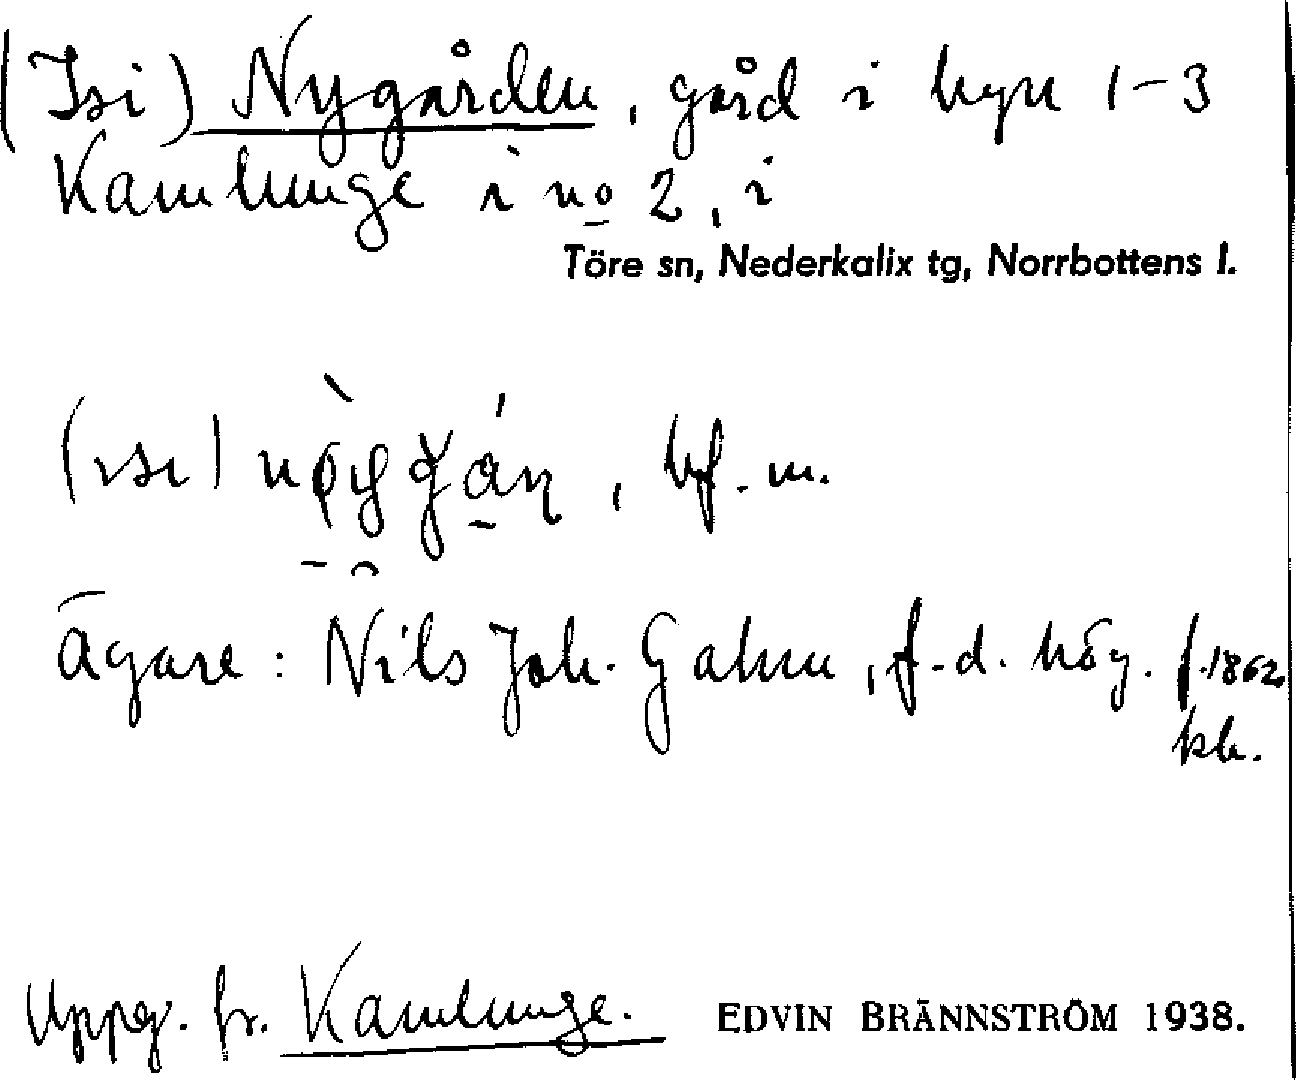 (Isi) Nygården, gård i byn 1-3
Kamlunge i no 2, i
Töre sn, Nederkalix tg, Norrbottens l.
bf. m.
Ägare: Nils Joh. Gahm, f.d. häg. f. 1862.
kb.
Uppg. fr. Kamlunge. EDVIN BRÄNNSTRÖM 1938.